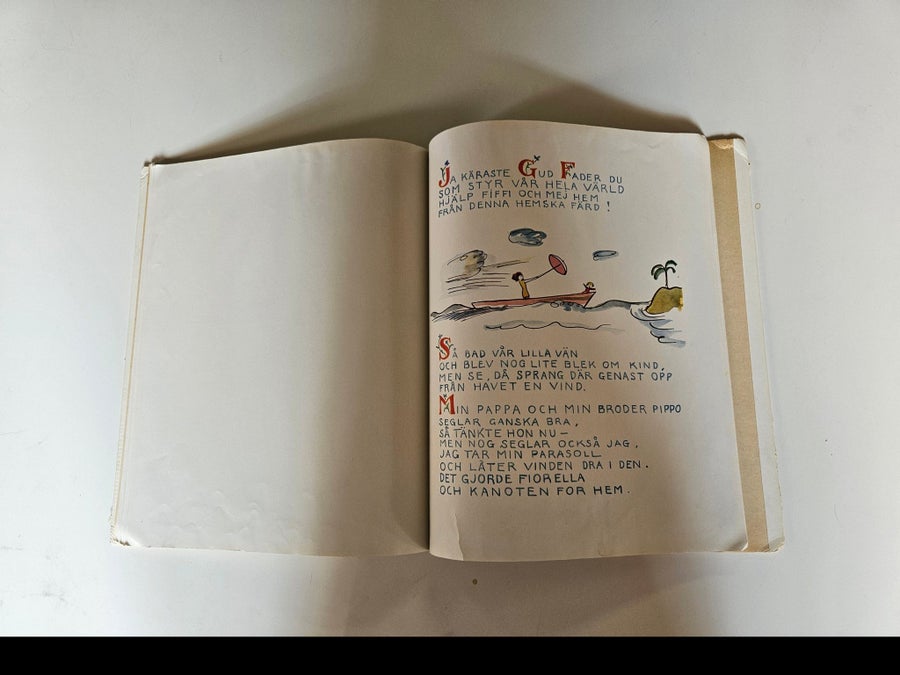 JA KÄRASTE GUD FADER DU
SOM STYR VÅR HELA VÄRLD
HJÄLP FIFFI OCH MEJ HEM
FRÅN DENNA HEMSKA FÄRD!
SÅ BAD VÅR LILLA VÄN
OCH BLEV NOG LITE BLEK OM KIND,
MEN SE, DÅ SPRANG DÄR GENAST OPP
FRÅN HAVET EN VIND.
MIN PAPPA OCH MIN BRODER PIPPO
SEGLAR GANSKA BRA,
SÅ TÄNKTE HON NU —
MEN NOG SEGLAR OCKSÅ JAG.
JAG TAR MIN PARASOLL
OCH LÅTER VINDEN DRA I DEN.
DET GJORDE FIORELLA
OCH KANOTEN FOR HEM.